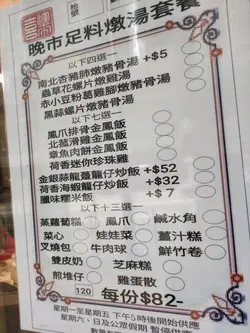 晚市足料燉湯套餐
以下四選一
南北杏豬肺燉豬骨湯+$5
蟲草花螺片燉雞湯
赤小豆粉葛雞腳燉豬骨湯
黑蒜螺片燉豬骨湯
以下七選一
鳳爪排骨金鳳飯
北菇滑雞金鳳飯
章魚肉餅金鳳飯
荷香迷你珍珠雞
金銀蒜龍蝦仔炒飯+$52
荷香海蝦龍仔炒飯+$32
臘味糯米飯+$7
以下十三選一
蒸蘿蔔糕 鳳爪 鹹水角
菜心 娃娃菜 薑汁糕
叉燒包 牛肉球 鮮竹卷
雙皮奶 芝麻糕
煎堆仔 雞蛋散
120 每份$82-
星期一至星期五 下午5時後開始供應
星期六、日及公眾假期 暫停供應